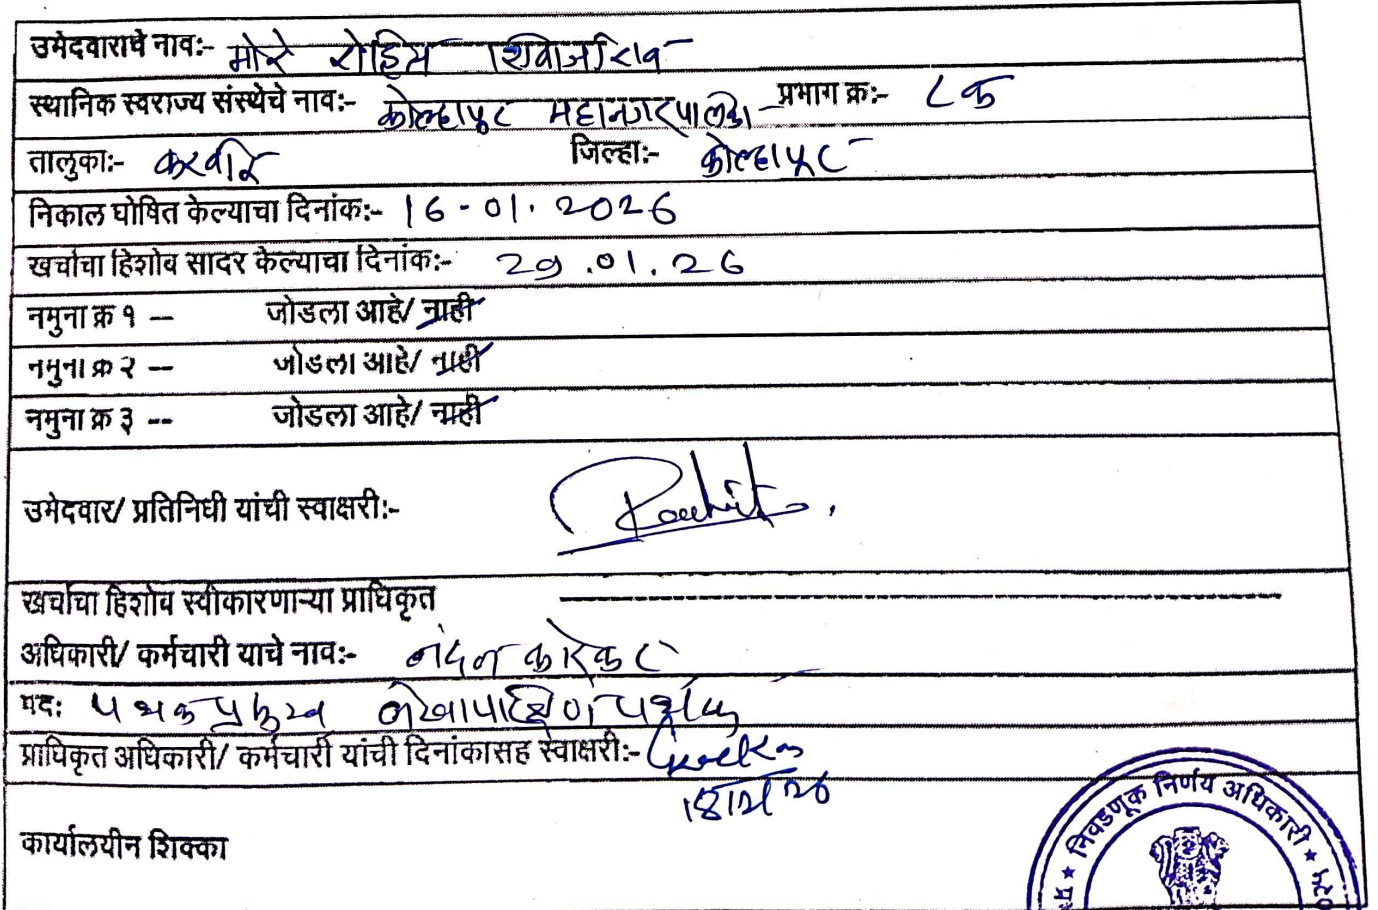 उमेदवाराचे नाव:- मोरे रोहित शिवाजीराव
स्थानिक स्वराज्य संस्थेचे नाव:- कोल्हापूर महानगरपालिका प्रभाग क्र:- ८ क
तालुका:- करवीर जिल्हा:- कोल्हापूर
निकाल घोषित केल्याचा दिनांक:- 16-01.2026
खर्चाचा हिशोब सादर केल्याचा दिनांक:- 29.01.26
नमुना क्र १ -- जोडला आहे/ नाही
नमुना क्र २ -- जोडला आहे/ नाही
नमुना क्र ३ -- जोडला आहे/ नाही
उमेदवार/ प्रतिनिधी यांची स्वाक्षरी:- Rouhit
खर्चाचा हिशोब स्वीकारणाऱ्या प्राधिकृत
अधिकारी/ कर्मचारी याचे नाव:- नंदन कारेकर
पद: पथक प्रमुख लेखापरिक्षण पथक
प्राधिकृत अधिकारी/ कर्मचारी यांची दिनांकासह स्वाक्षरी:-
कार्यालयीन शिक्का
निवडणूक निर्णय अधिकारी